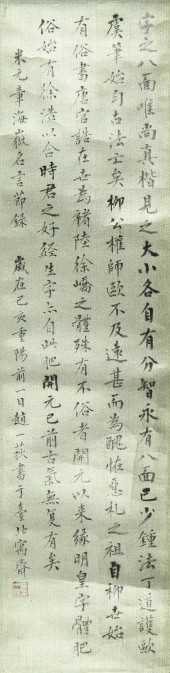 字之八面唯尚真楷見之大小各自有分智永有八面已少鍾法丁道護歐
虞筆始勻古法亡矣柳公權師歐不及遠甚而為醜怪惡札之祖自柳世始
有俗書唐官誥在世為褚陸徐嶠之體殊有不俗者開元以來緣明皇字體肥
俗始有徐浩以合時君之好經生字亦自此肥開元已前古氣無复有矣
米元章海嶽名言節錄 歲在己亥重陽前一日趙一荻書于臺北寓齋